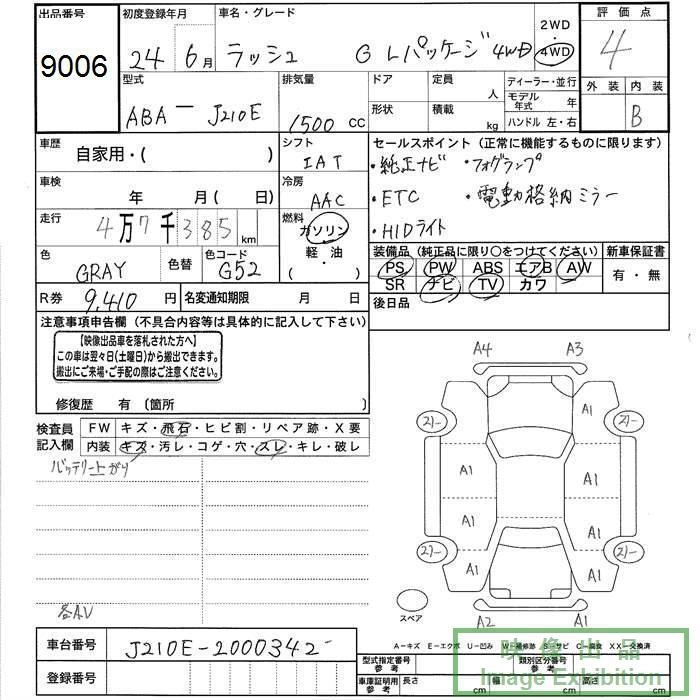 出品番号 初度登録年月 車名・グレード 2WD 評価点
9006 24 6月 ラッシュ G Lパッケージ 4WD 4WD 4
型式 排気量 ドア 定員 人 ディーラー・並行 外装 内装
ABA－J210E 1500 CC 形状 積載 kg モデル年式 年 B
ハンドル 左・右
車歴 シフト セールスポイント（正常に機能するものに限ります）
自家用・( ) IAT ・純正ナビ ・フォグランプ
車検 冷房 ・ETC ・電動格納ミラー
年 月( 日) AAC ・HIDライト
走行 燃料
4万7千385km ガソリン・軽・油( ・ )
色 色替 色コード 装備品（純正品に限り○をつけてください） 新車保証書
GRAY G52 PS PW ABS エアB AW 有・無
SR ナビ TV カワ
R券 9,410円 名変通知期限 月 日 後日品
注意事項申告欄（不具合内容等は具体的に記入して下さい）
【映像出品車を落札された方へ】
この車は翌々日(土曜日)から搬出できます。
搬出にご来場・ご手配の際はご注意ください。
修復歴 有〔箇所 〕
検査員記入欄 FW キズ・飛石・ヒビ割・リペア跡・X要
内装 キズ・汚レ・コゲ・穴・スレ・キレ・破レ
バッテリー上がり
各AV
A4 A3
A1
21- 21-
A1 A1
A1 A1
21- 21-
A1
A2 A1
スペア
A－キズ E－エクボ U－凹み W－補修跡 S－サビ C－腐食 XX－交換済
車台番号 J210E-2000342
登録番号
型式指定番号 参考 類別区分番号 参考
車庫証明用 参考 長さ cm 幅 cm cm
映像出品
Image Exhibition